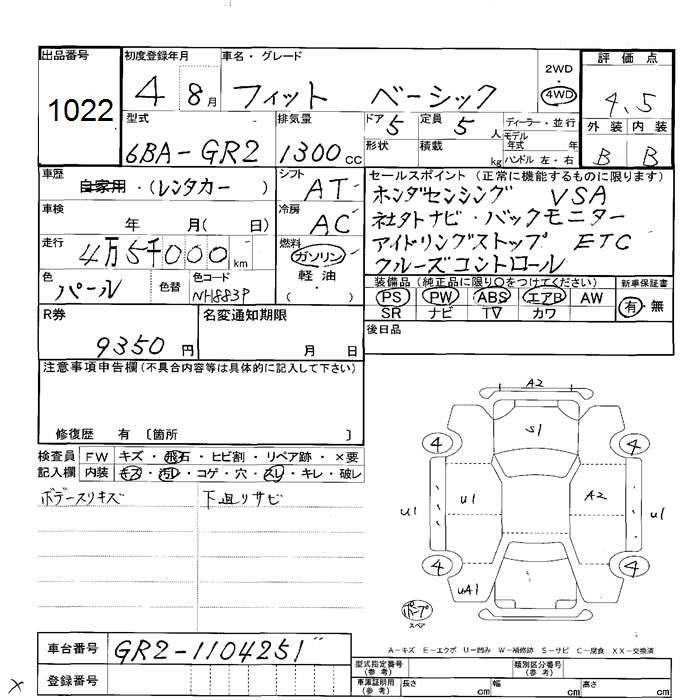 出品番号 初度登録年月 車名・グレード 2WD・4WD 評価点
1022 4 8月 フィット ベーシック 4.5
型式 排気量 ドア 5 定員 5人 ディーラー・並行 外装 内装
6BA-GR2 1300cc 形状 積載 kg モデル年式 年 B B
ハンドル 左・右
車歴 自家用・(レンタカー) シフト AT セールスポイント (正常に機能するものに限ります)
ホンダセンシング VSA
車検 年 月(日) 冷房 AC 社外ナビ・バックモニター
走行 4万5千000km 燃料 ガソリン アイドリングストップ ETC
軽油・( ) クルーズコントロール
色 パール 色替 色コード NH883P 装備品 (純正品に限り○をつけてください) 新車保証書
PS PW ABS エアB AW 有・無
SR ナビ TV カワ
R券 名変通知期限 後日品
9350円 月 日
注意事項申告欄(不具合内容等は具体的に記入して下さい)
修復歴 有 〔箇所 〕
検査員 FW キズ・飛石・ヒビ割・リペア跡・×要
記入欄 内装 キズ・汚レ・コゲ・穴・スレ・キレ・破レ
ボデースリキズ 下廻リサビ
A2
S1
4 4
U1 U1 A2 U1
4 4
uA1
スペア
A-キズ E-エクボ U-凹み W-補修跡 S-サビ C-腐食 XX-交換済
車台番号 GR2-1104251"
型式指定番号(参考) 類別区分番号(参考)
登録番号 車庫証明用(参考) 長さ cm 幅 cm 高さ cm
×